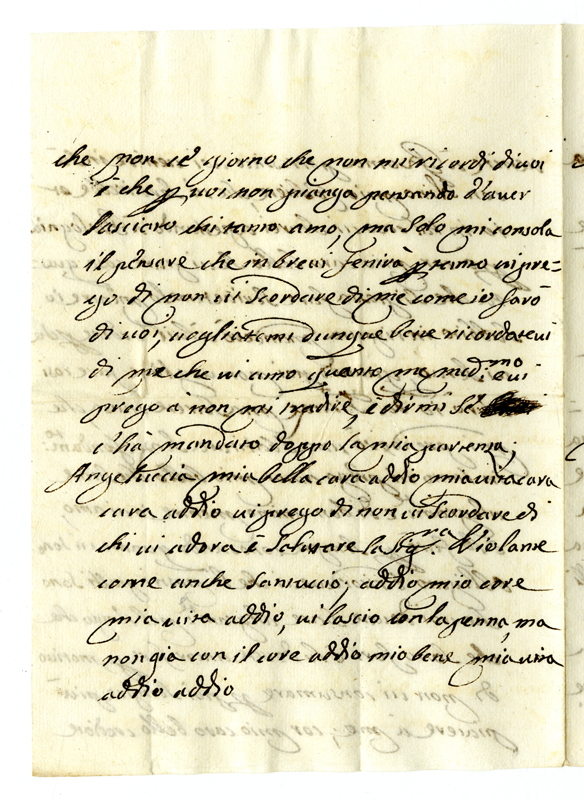 che non c'è giorno che non mi ricordi di voi
è che p voi non pianga pensando d'aver
lasciato chi tanto amo, ma solo mi consola
il pensare che in breve finirà p tanto vi pre=
go di non vi scordare di me come io farò
di voi, vogliatemi dunque bene ricordatevi
di me che vi amo quanto me med.mo e vi
prego à non mi tradire, è dirmi se
c'hà mandato doppo la mia partenza;
Angeluccia mia bella cara addio mia vita cara
cara addio vi prego di non vi scordare di
chi vi adora è salutare la Sig.ra Violante
come anche Santuccio; addio mio core
mia vita addio, vi lascio con la penna, ma
non gia con il core addio mio bene mia vita
addio addio